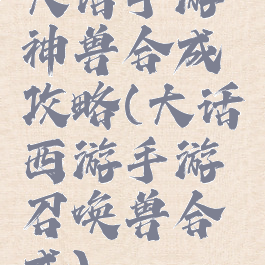 大话手游
神兽合成
攻略(大话
西游手游
召唤兽合
成)